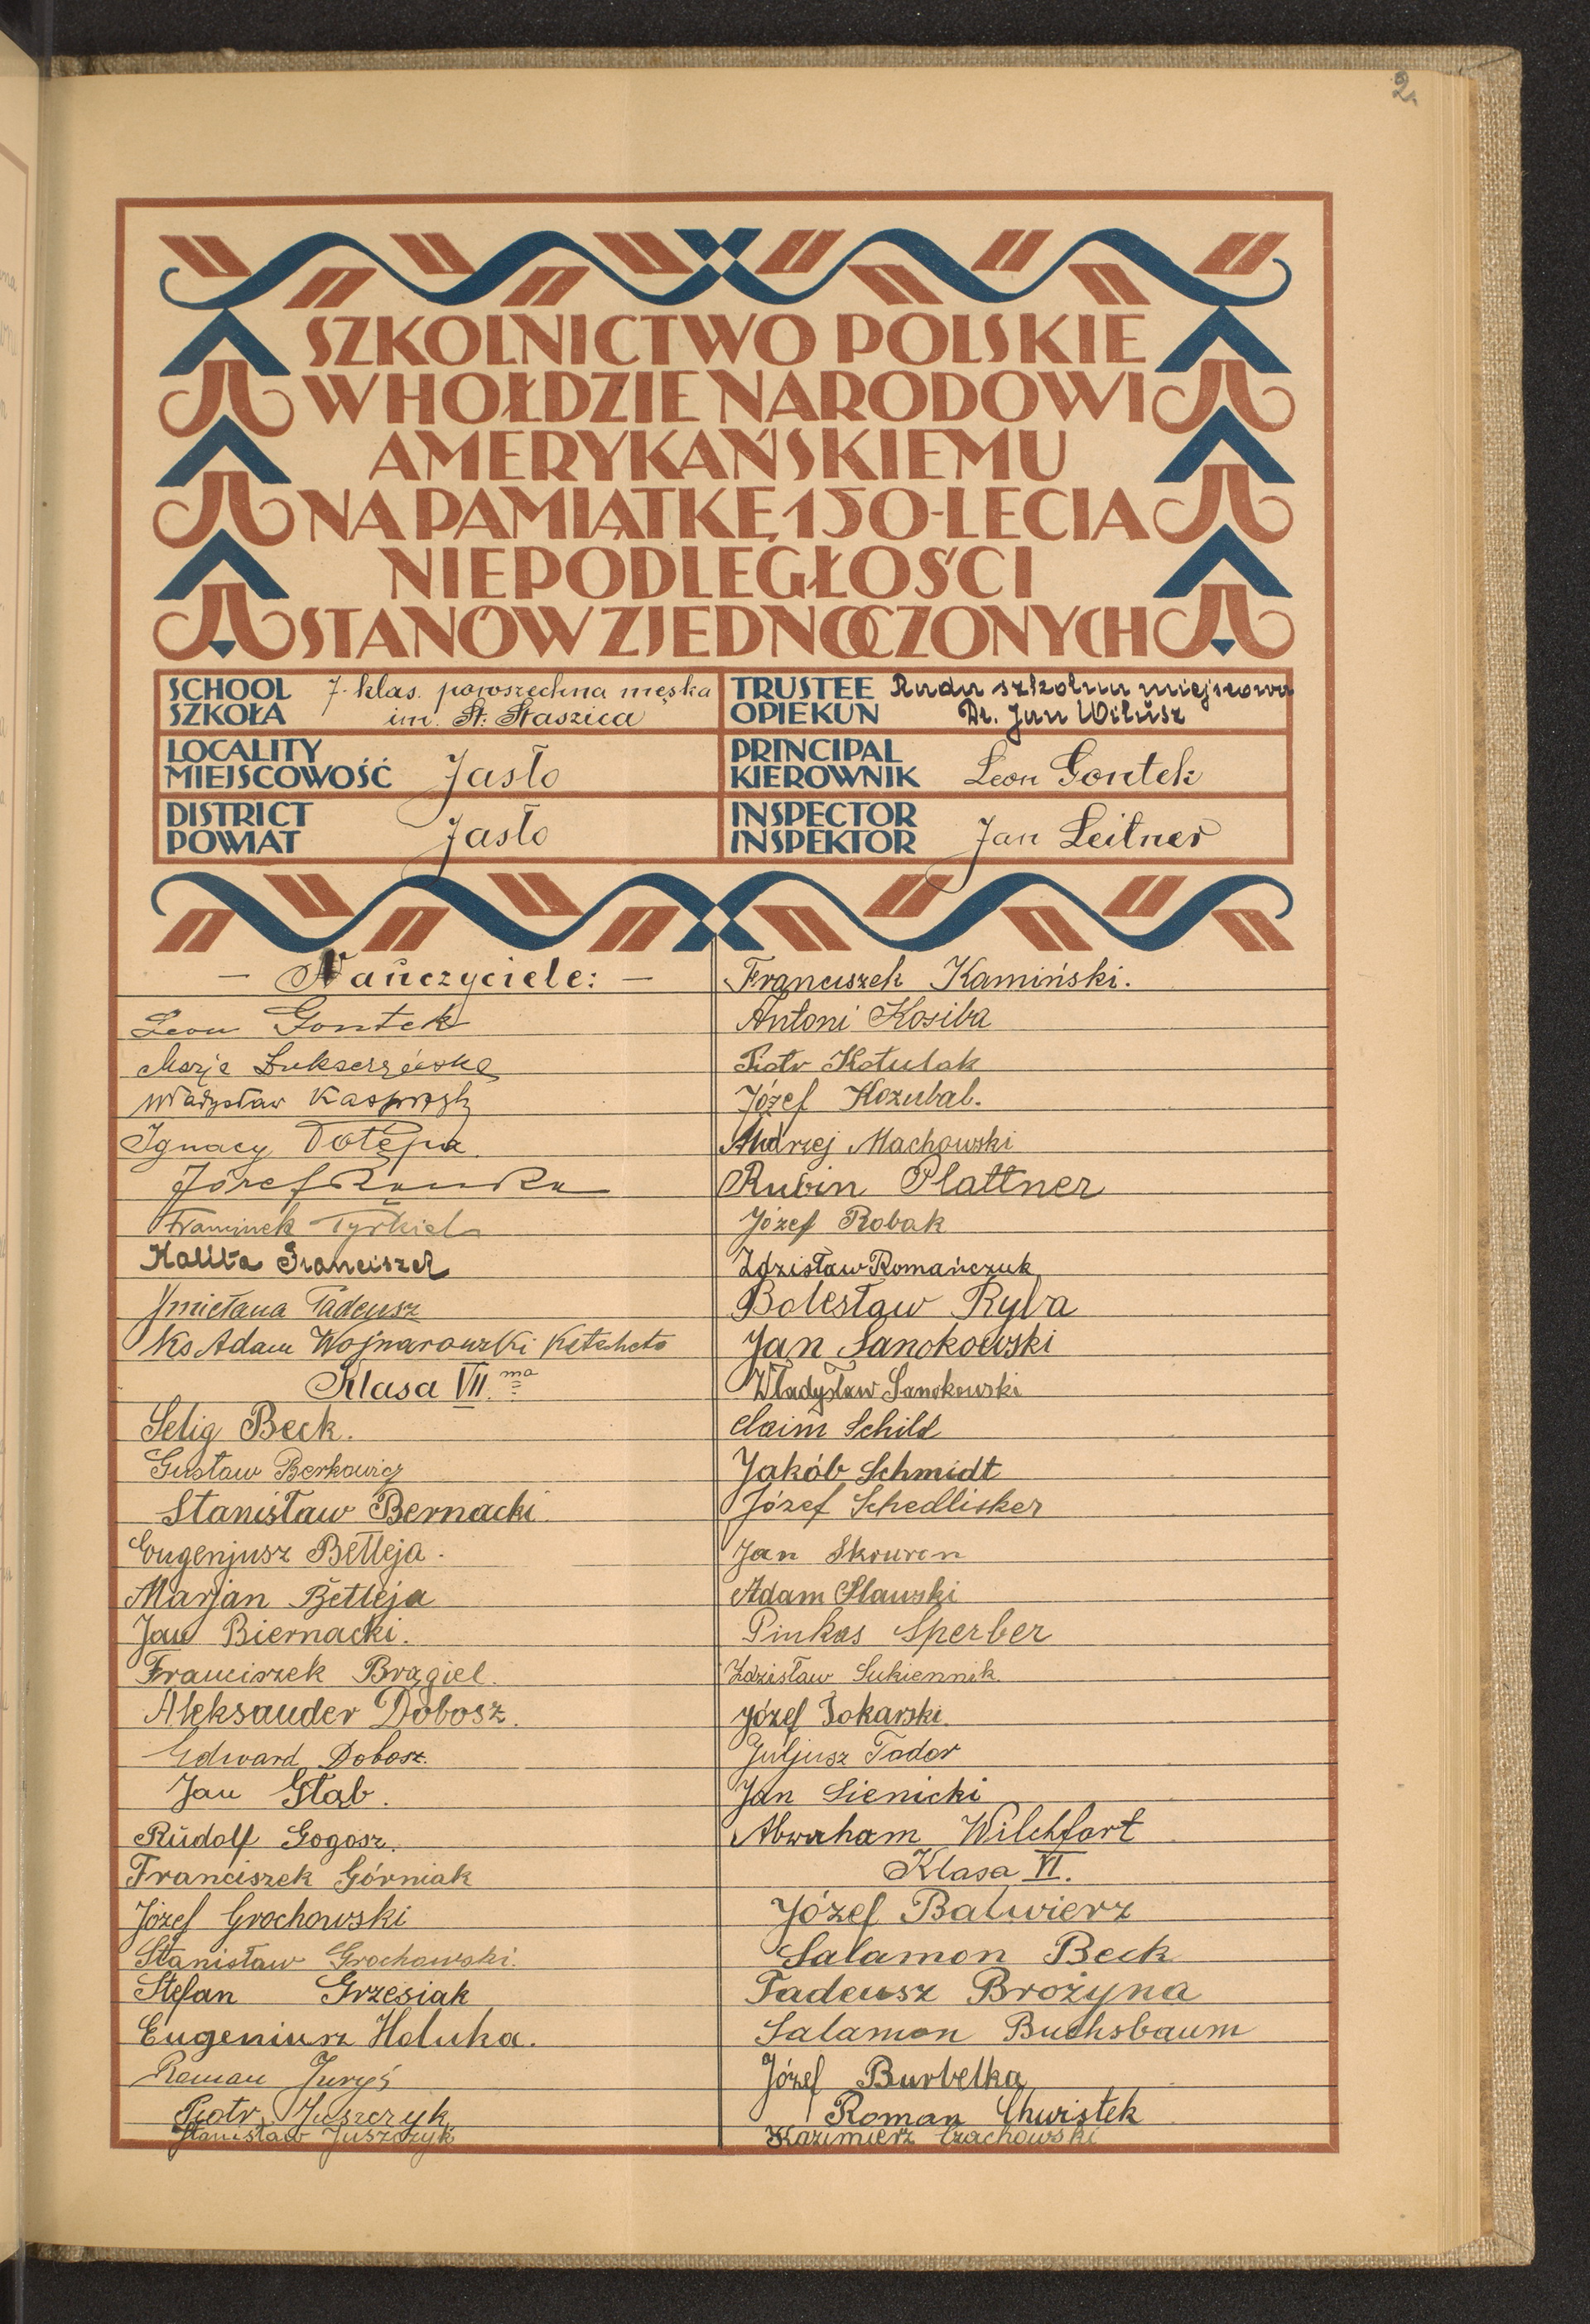 2.
SZKOLNICTWO POLSKIE
W HOŁDZIE NARODOWI
AMERYKAŃSKIEMU
NA PAMIĄTKĘ 150-LECIA
NIEPODLEGŁOŚCI
STANÓW ZJEDNOCZONYCH
SCHOOL
SZKOŁA
7-klas. powszechna męska
im. St. Staszica
TRUSTEE
OPIEKUN
Rada szkolna miejscowa
Dr. Jan Wilusz
LOCALITY
MIEJSCOWOŚĆ
Jasło
PRINCIPAL
KIEROWNIK
Leon Gontek
DISTRICT
POWIAT
Jasło
INSPECTOR
INSPEKTOR
Jan Leitner
— Nauczyciele: —
Leon Gontek
Marja
Władysław Kasprzyk
Ignacy Potępa
Józef
Franciszek
Kalita Franciszek
Śmietana Tadeusz
Ks Adam Wojnarowski Katecheta
Klasa VII.ma
Selig Beck.
Gustaw Berkowicz
Stanisław Bernacki
Eugenjusz Betleja.
Marjan Betleja
Jan Biernacki.
Franciszek Brągiel.
Aleksander Dobosz.
Edward Dobosz.
Jan Głąb.
Rudolf Gogosz.
Franciszek Górniak
Józef Grochowski
Stanisław Grochowski.
Stefan Grzesiak
Eugeniusz Hałuka.
Roman Juryś
Piotr Juszczyk
Stanisław Juszczyk
Franciszek Kamiński.
Antoni Kosiba
Piotr Kotulak
Józef Kozubal.
Andrzej Machowski
Rubin Plattner
Józef Robak
Zdzisław Romańczuk
Bolesław Ryba
Jan Sanokowski
Władysław Sanokowski
Chaim Schild
Jakób Schmidt
Józef Schedlisker
Jan Skruren
Adam Sławski
Pinkas Sperber
Zdzisław Sukiennik.
Józef Tokarski.
Juljusz Todor
Jan Sienicki
Abraham Wilchfort
Klasa VI.
Józef Balwierz
Salamon Beck
Tadeusz Brożyna
Salamon Buchsbaum
Józef Burbelka
Roman Chwistek
Kazimierz Czachowski